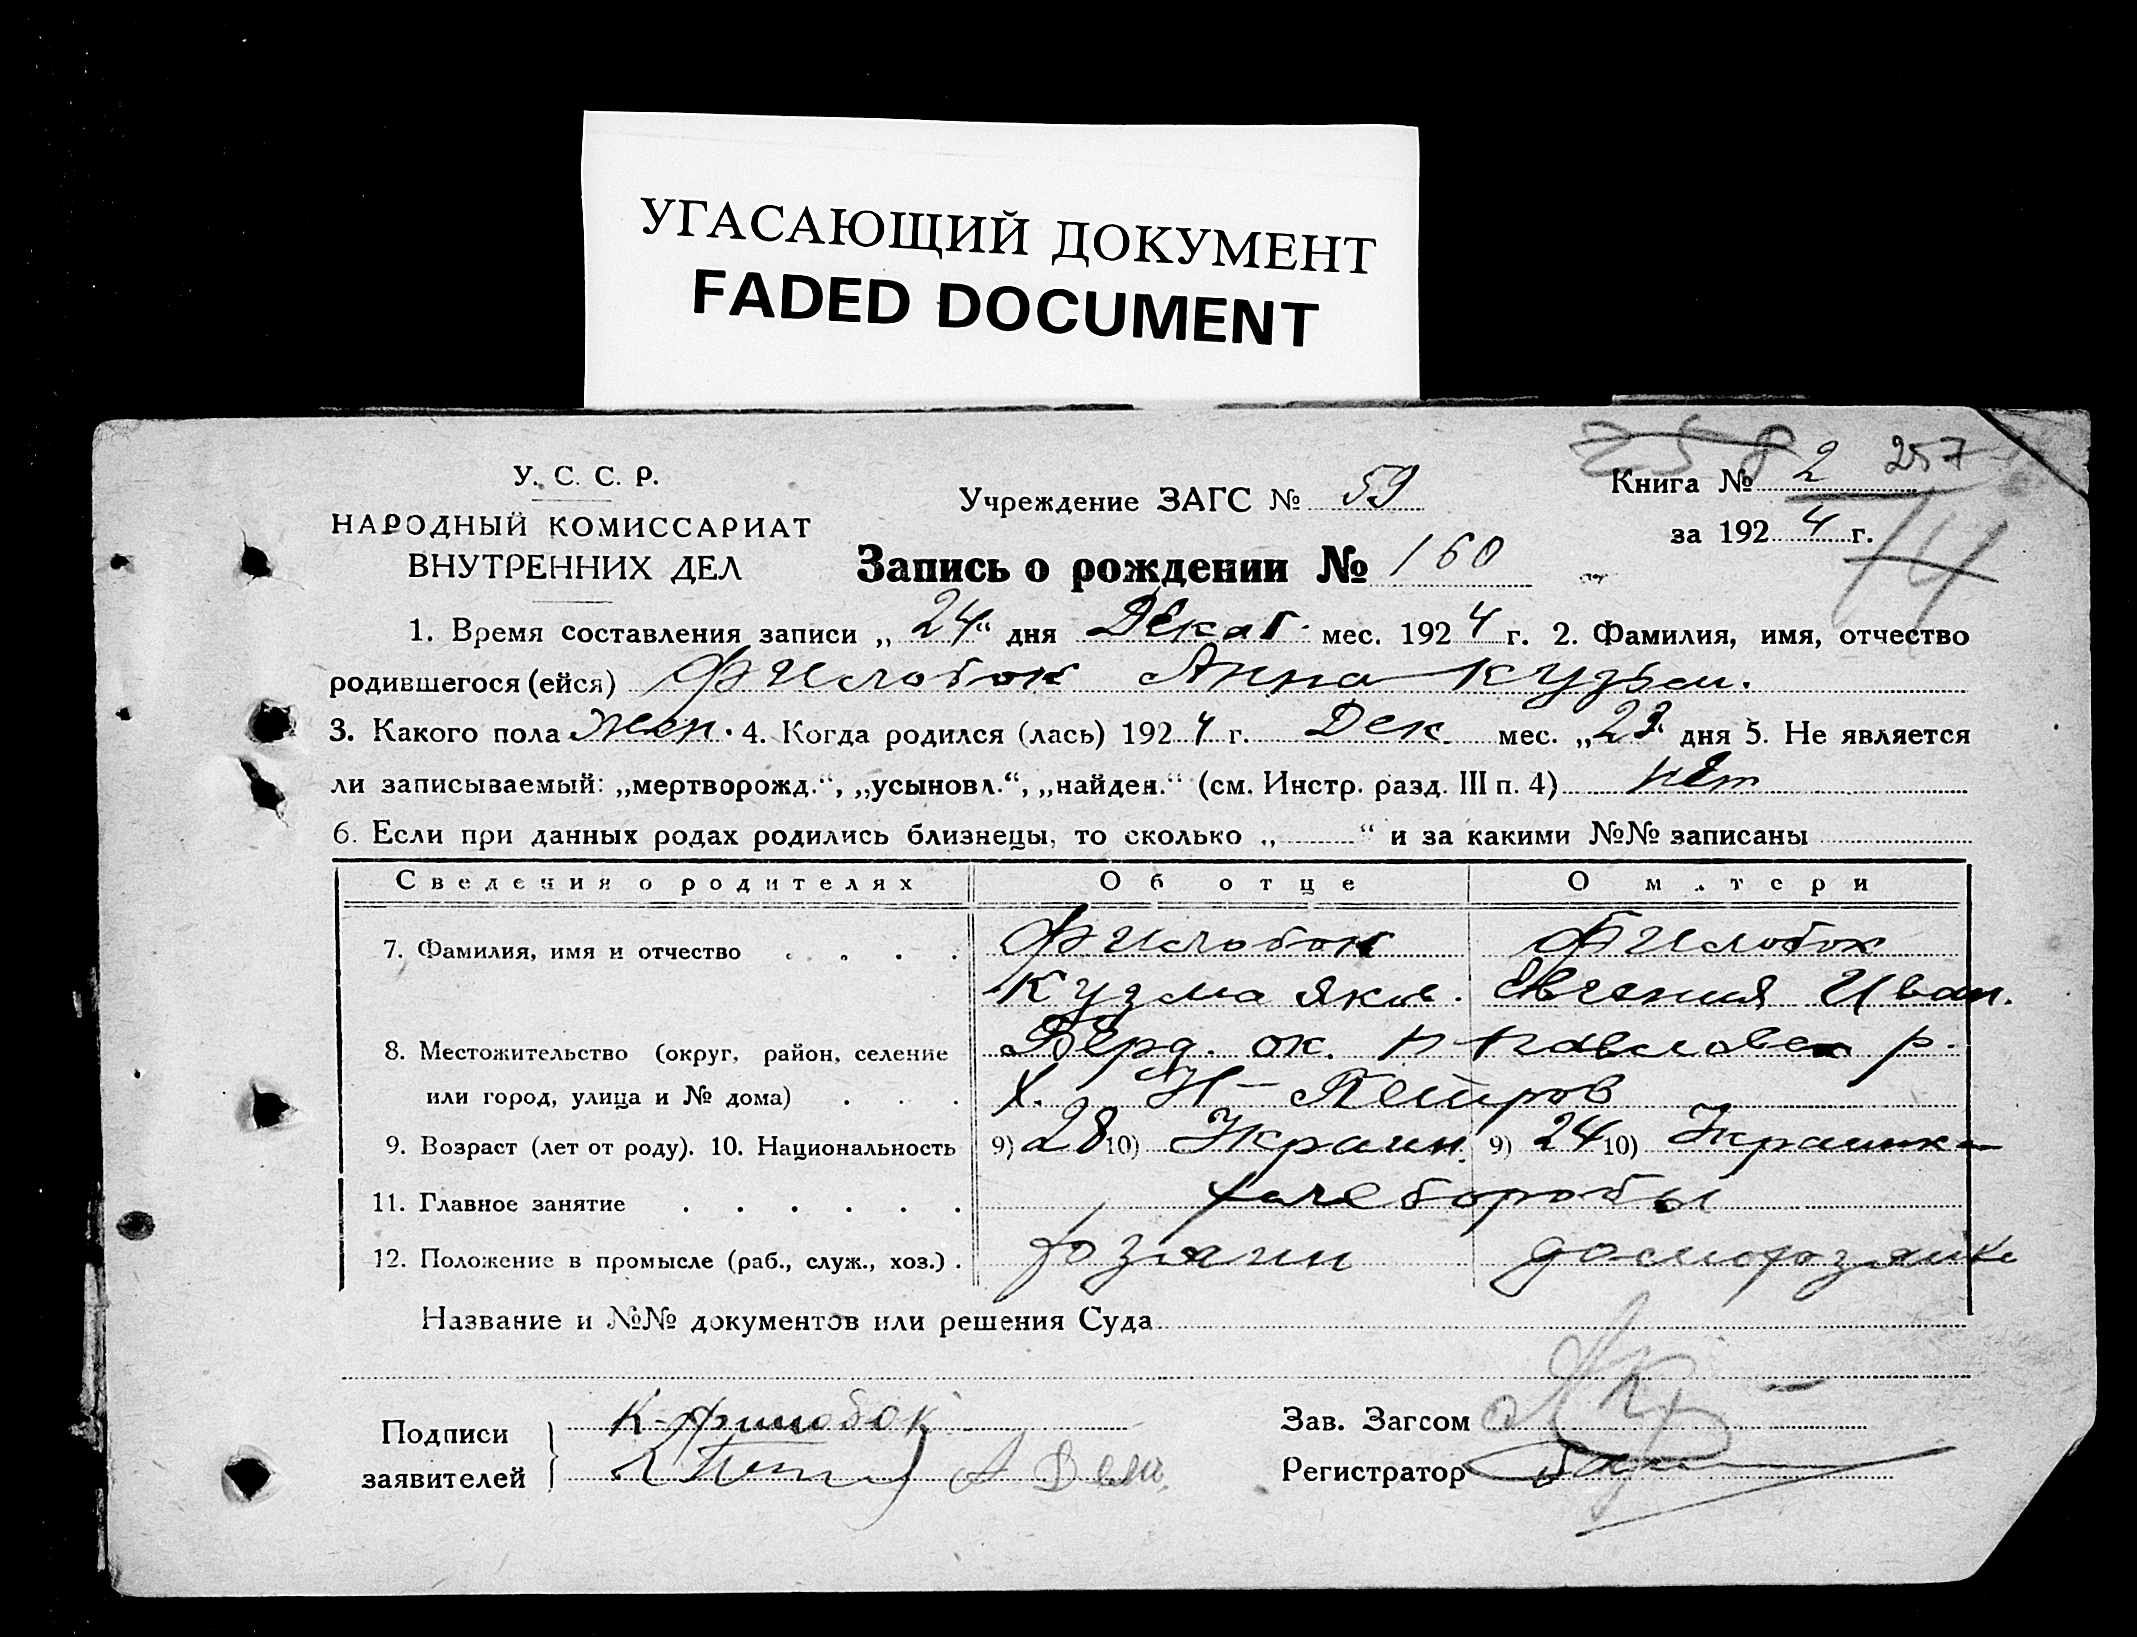 УГАСАЮЩИЙ ДОКУМЕНТ
FADED DOCUMENT
258 257
У. С. С. Р.
НАРОДНЫЙ КОМИССАРИАТ
ВНУТРЕННИХ ДЕЛ
Учреждение ЗАГС № 59
Книга № 2
за 1924 г.
14
Запись о рождении № 160
1. Время составления записи „24“ дня Декаб. мес. 1924 г. 2. Фамилия, имя, отчество
родившегося (ейся) Филобок Анна Кузьм.
3. Какого пола жен. 4. Когда родился (лась) 1924 г. Дек. мес. „23“ дня 5. Не является
ли записываемый: „мертворожд.“, „усыновл.“, „найден.“ (см. Инстр. разд. III п. 4) нет
6. Если при данных родах родились близнецы, то сколько „ “ и за какими №№ записаны
Сведения о родителях Об отце О матери
7. Фамилия, имя и отчество Филобок Филобок
Кузма Яков. Евгения Иван.
8. Местожительство (округ, район, селение Берд. ок. р.
или город, улица и № дома) х. Н-Петров
9. Возраст (лет от роду). 10. Национальность 9) 28 10) Украин. 9) 24 10) Украинка
11. Главное занятие хлеборобы
12. Положение в промысле (раб., служ., хоз.) хозяин домохозяйка
Название и №№ документов или решения Суда
Подписи К. Филобок
заявителей
Зав. Загсом
Регистратор